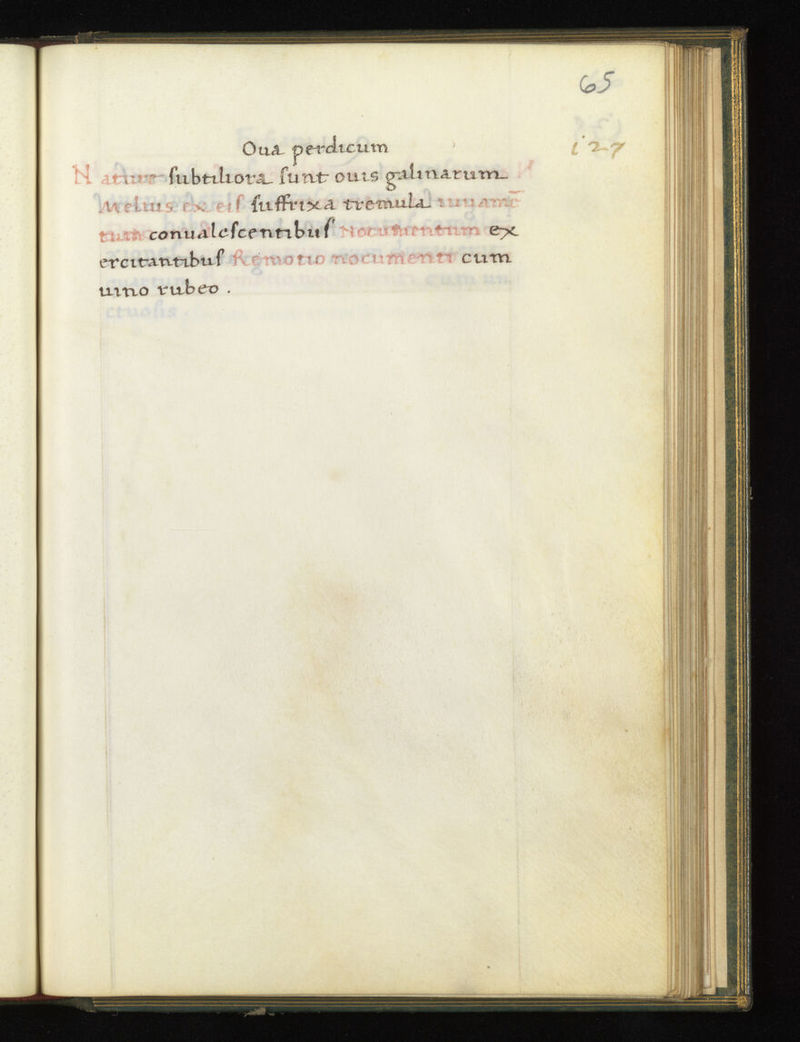 65
Oua perdicum
i27
Nature subtiliora sunt ouis galinarum
Melius ex eis suffrixa tremula iuuamē
tum conualescentibus Nocumentum ex
ercitantibus Remotio nocumenti cum
uino rubeo .